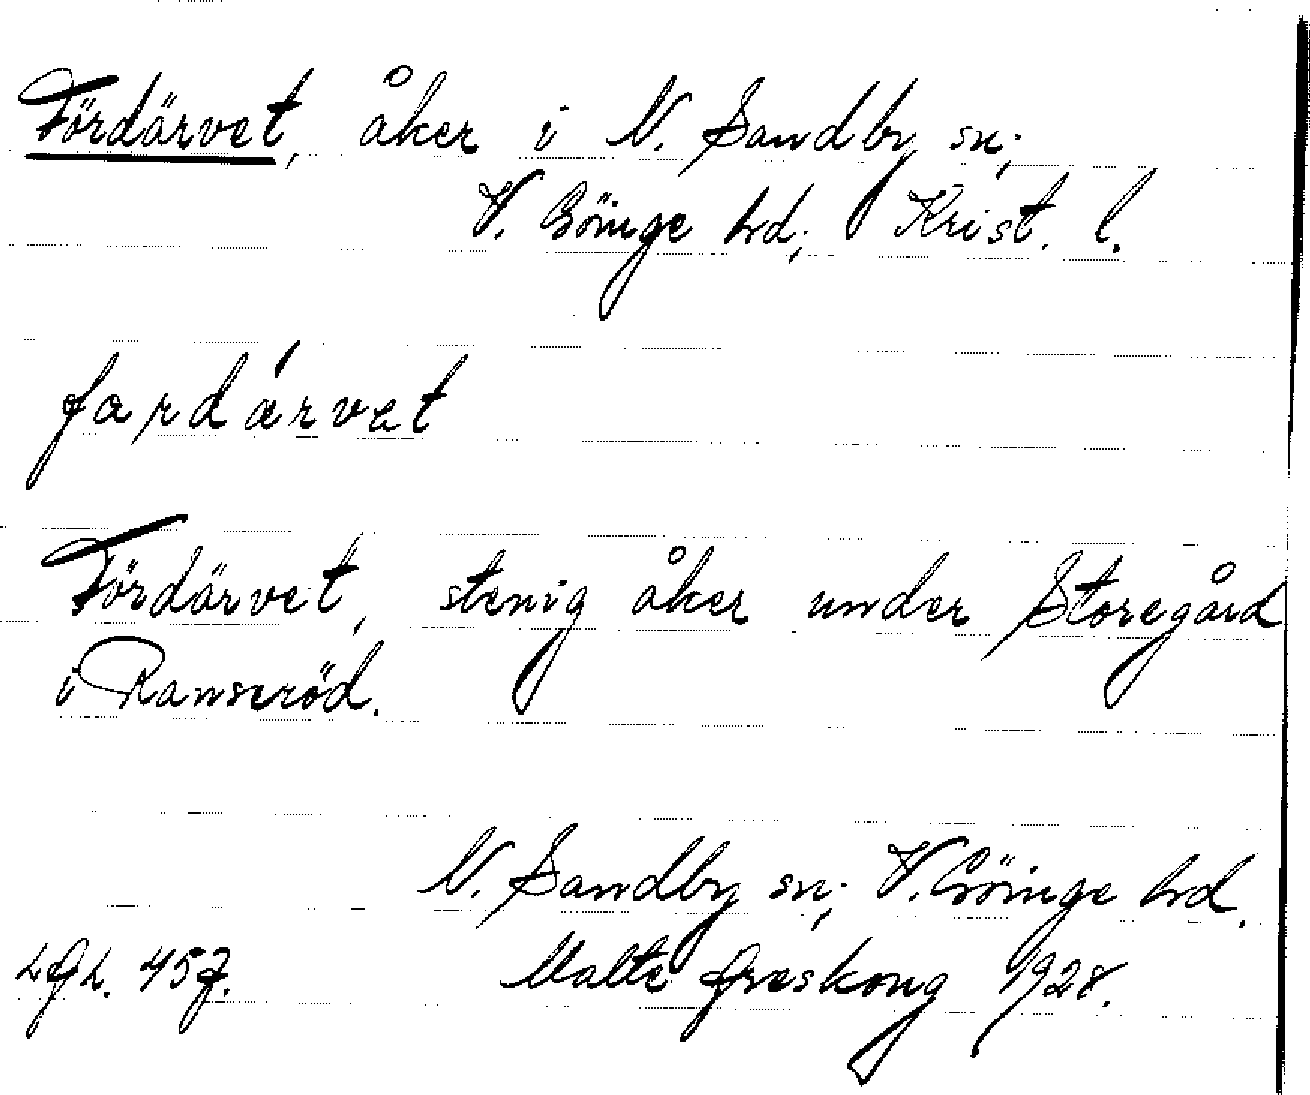 Fördärvet, åker i N. Sandby sn;
V. Göinge hd; Krist. l.
fardárvat
Fördärvet, stenig åker under Storegård
i Ranseröd.
N. Sandby sn; V. Göinge hd.
457. Malte 1928.